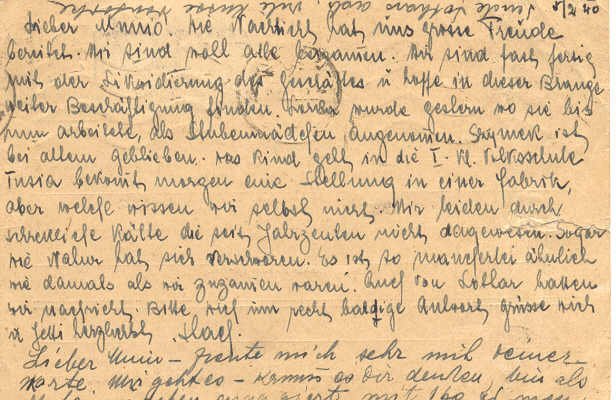 8/2 40
Lieber Munio. Die Nachricht hat uns grosse Freude
bereitet. Wir sind wohl alle beizamen. Wir sind fast fertig
mit der Likwidierung des Geschäftes u hoffe in dieser Brange
weiter Beschäftigung finden. wurde gestern wo sie bis
nun arbeitete, als Stubenmädchen angenomen. Szymek ist
bei allem geblieben. Das Kind geht in die I. Kl. Volksschule
Tusia bekomt morgen eine Stellung in einer Fabrik,
aber welche wissen wir selbst nicht. Wir leiden durch
schreckliche Kälte die seit Jahrzenten nicht dagewesen. Sogar
die Natur hat sich verschworen. Es ist so mancherlei ähnlich
wie damals als wir zuzamen waren. Auch von Lothar hatten
wir Nachricht. Bitte, Dich um recht baldige Antwort grüsse Dich
u Hetti herzlichst
Lieber Munio – freute mich sehr mit deiner
Karte. Mir geht es – kannst es dir denken, bin als
mit 100 zł mon.